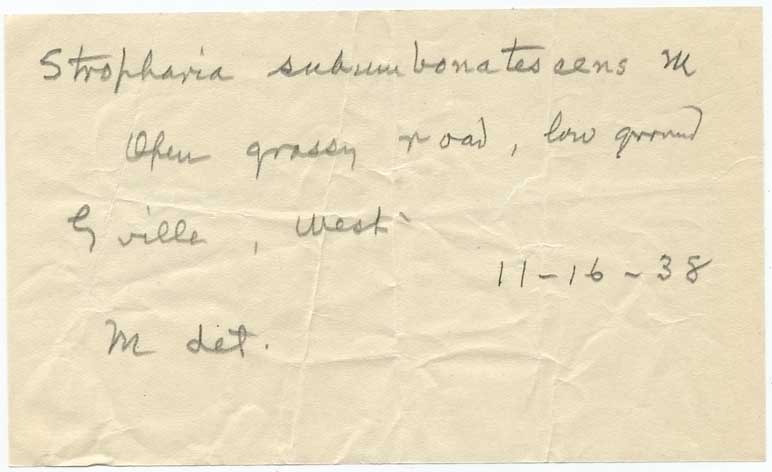 Stropharia subumbonatescens M
Open grassy road, low ground
G'ville, West
11-16-38
M det.